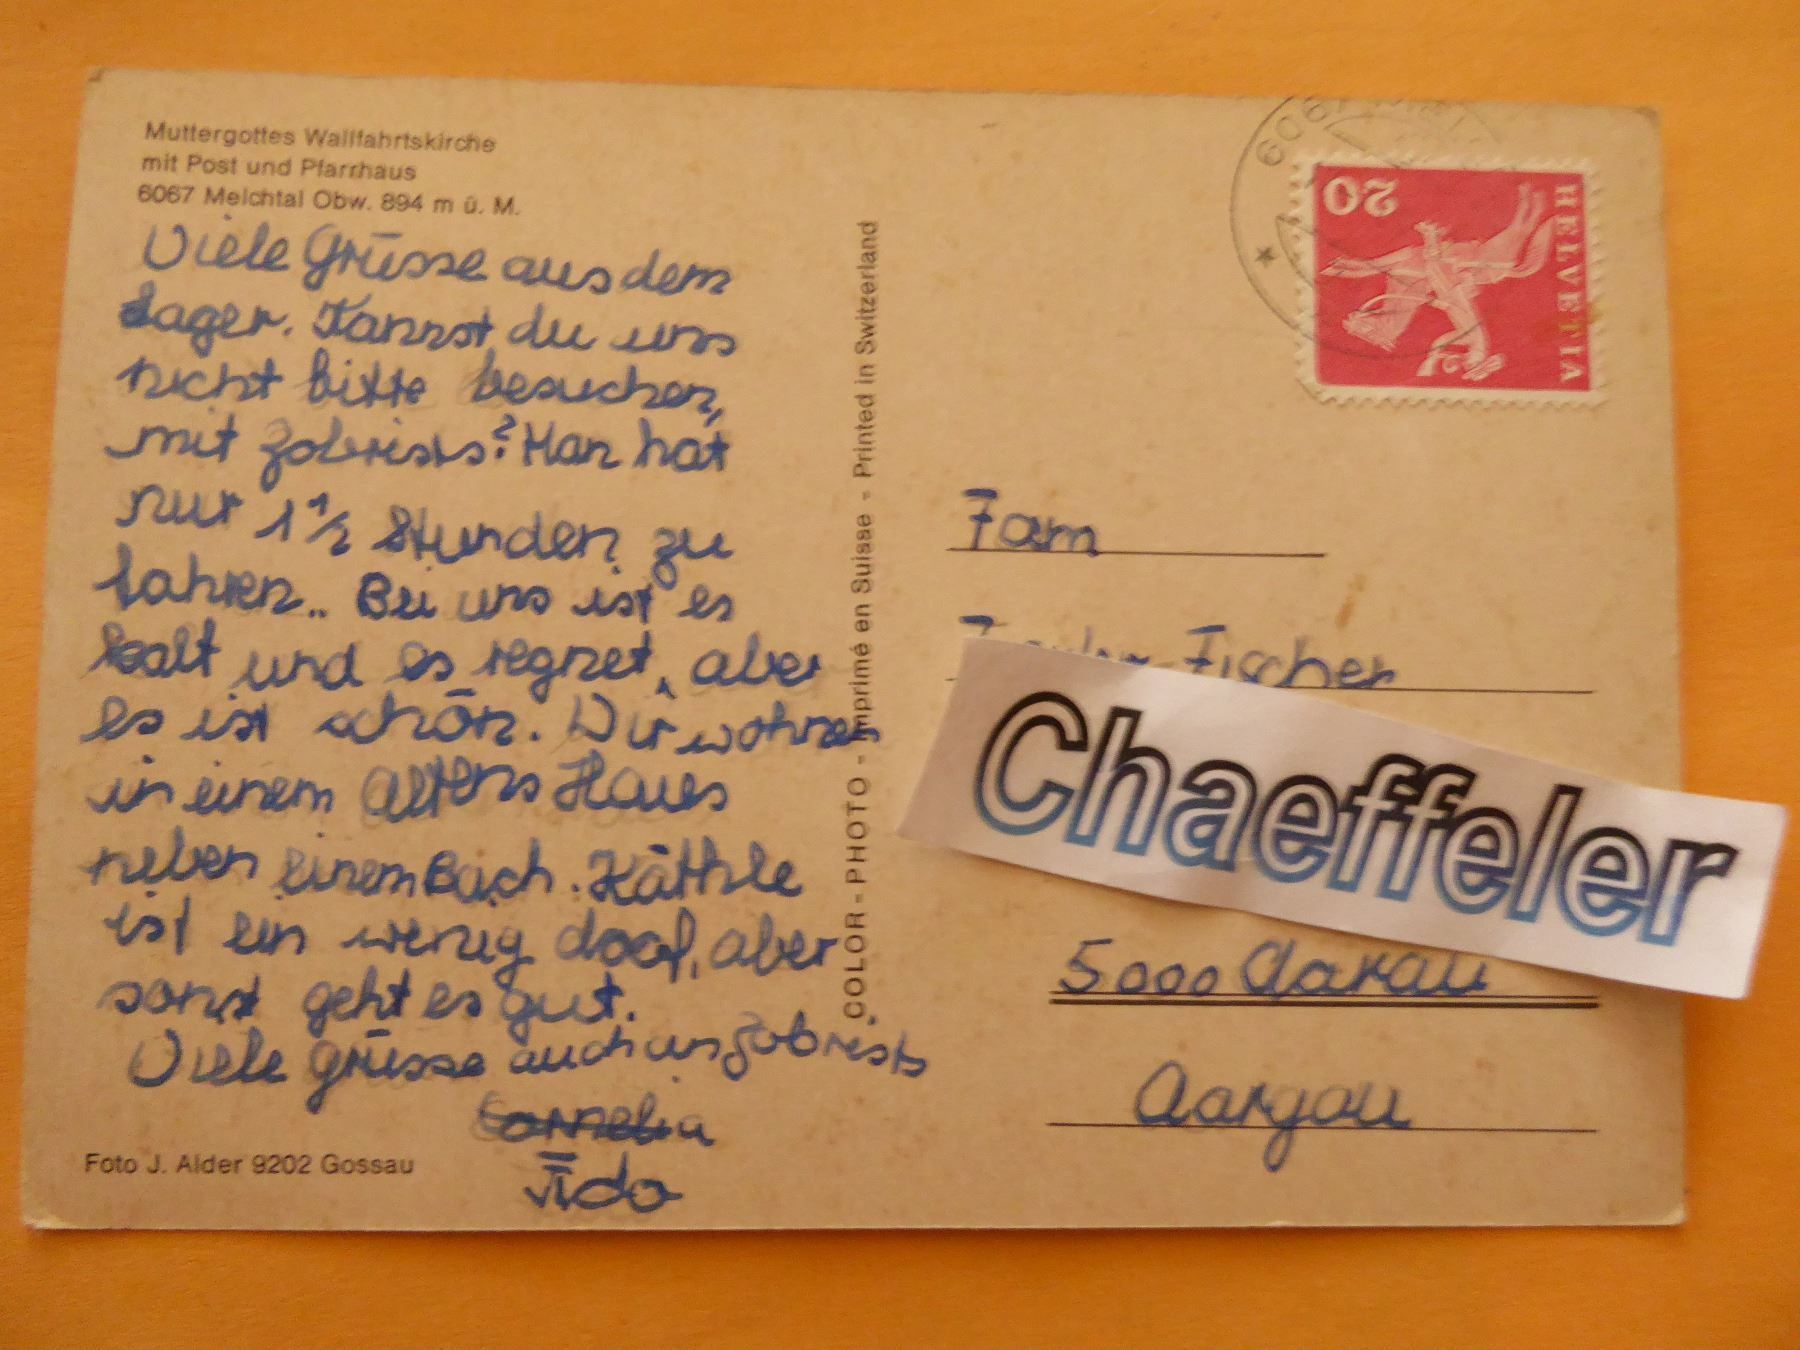 Muttergottes Wallfahrtskirche
mit Post und Pfarrhaus
6067 Melchtal Obw. 894 m ü. M.
Viele Grüsse aus dem
Lager. Kannst du uns
nicht bitte besuchen,
mit Zobrists? Man hat
nur 1 1/2 Stunden zu
fahren.. Bei uns ist es
kalt und es regnet, aber
es ist schön. Wir wohnen
in einem altens Haus
neben einem Bach. Käthle
ist ein wenig doof, aber
sonst geht es gut.
Viele grüsse auch an Zobrists
Cornelia
Vido
Foto J. Alder 9202 Gossau
COLOR-PHOTO - Imprimé en Suisse - Printed in Switzerland
6067
20
HELVETIA
Fam
Fischer
Chaeffeler
5000 Aarau
Aargau